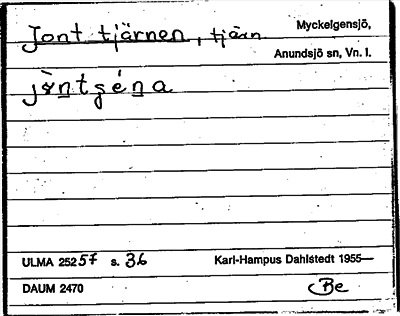 Jont tjärnen, tjärn Myckelgensjö,
Anundsjö sn, Vn. l.
jò̀n̲tšéna
ULMA 25257 s. 36 Karl-Hampus Dahlstedt 1955—
DAUM 2470 Be